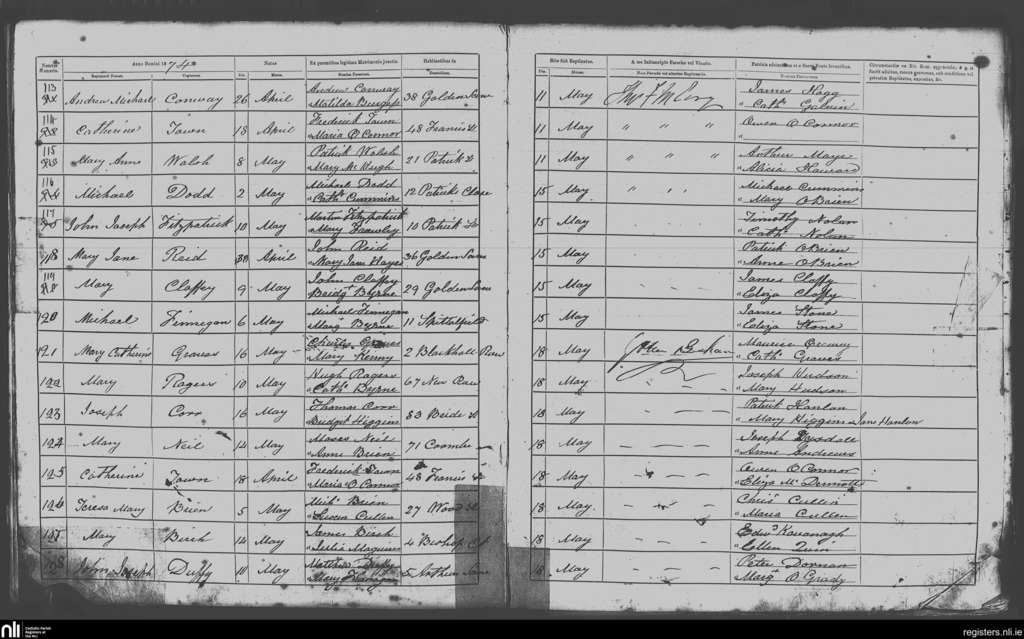 Anno Domini 1874
Natus
Ex parentibus legitimo Matrimonio junctis.
Habitantibus in
Die.
Mense.
113
Andrew Michael Conway 26 April Andrew Conway 38 Golden Lane
Matilda
114
Catherine Town 18 April Frederick Town 48 Francis St
Maria O Connor
115
Mary Anne Walsh 8 May Patrick Walsh 21 Patrick St
Mary Mc Hugh
116
Michael Dodd 2 May Michael Dodd 12 Patricks Close
Cath Cummins
117
John Joseph Fitzpatrick 10 May Martin Fitzpatrick 10 Patrick St
Mary
118
Mary Jane Reid 30 April John Reid 36 Golden Lane
Mary Jane Hayes
119
Mary Claffey 9 May John Claffey 29 Golden Lane
Bridgt Byrne
120
Michael Finnegan 6 May Michael Finnegan 11 Spittalfield
Marg Byrne
121
Mary Catherine Graves 16 May Charles Graves 2 Blackhall Row
Mary Kenny
122
Mary Rogers 10 May Hugh Rogers 67 New Row
Cath Byrne
123
Joseph Corr 16 May Thomas Corr 83 Bride St
Bridget Higgins
124
Mary Neil 14 May Moses Neil 71 Coombe
Anne Brien
125
Catherine Town 18 April Frederick Town 48 Francis St
Maria O Connor
126
Teresa Mary Brien 5 May Mich Brien 27 Wood St
Cullen
127
Mary Birch 14 May James Birch 4 Bishop Ct
Julia Maguire
128
John Joseph Duffy 10 May Matthew Duffy 5 Arthur Lane
Mary
Hoc die Baptizatus.
A me Infrascripto Parocho vel Vicario.
Die.
Mense.
11 May James Hagg
Cath Galvin
11 May " " " Owen O Connor
"
11 May " " " Arthur Mayne
Alicia Howard
15 May " " " Michael Cummins
Mary O Brien
15 May Timothy Nolan
Cath Nolan
15 May Patrick O Brien
Anne O Brien
15 May James Claffy
Eliza Claffy
15 May James Stone
Eliza Stone
18 May Maurice
Cath Graves
18 May Joseph Hudson
Mary Hudson
18 May Patrick Hanlon
Mary Higgins Jane Hanlon
18 May Joseph
Anne Andrews
18 May Owen O Connor
Eliza Mc Dermott
18 May Chris Cullen
Maria Cullen
18 May Edwd Kavanagh
Ellen Quin
18 May Peter Dornan
Marg O Grady
nli
Catholic Parish
Registers at
the NLI
registers.nli.ie